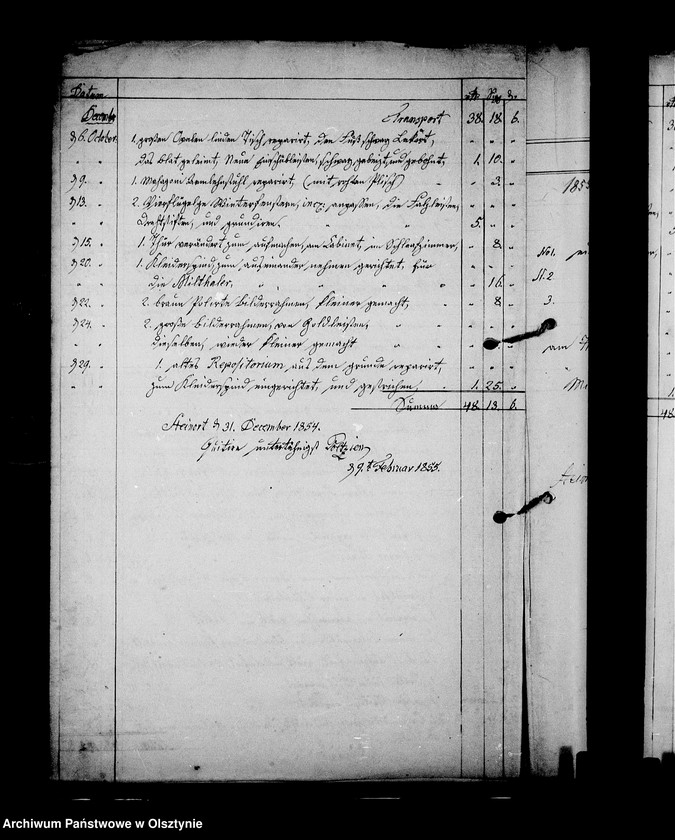 Datum rtl. Sgr d.
Decembr Transport 38. 18. 6.
d 6. October 1. großen Ovalen linden Tisch reparirt, den Fuß schwarz Lakirt,
" " das blat geleimt, Neue Einschubleisten, schwarz gebeizt, und gebohnt, 1. 10. "
d 9. " 1. Mahagoni Armlehnstuhl reparirt, (mit rothen Plüsch) " 3. "
d 13. " 2. Vierflüglige Winterfenstern, anpassen, die
" " und grundiren. 5. " "
d 15. " 1. Thür verändert zum aufmachen, am Cabinet, im Schlafzimmer, " 8. "
d 20. " 1. Kleiderspind, zum auseinander nehmen gerichtet, für
" " die Milthaler, " 16. "
d 22. " 2. braun Polirte Bilderrahmen, kleiner gemacht, " 8 "
d 24. " 2. große Bilderrahmen, von Goldleisten,
dieselben, wieder kleiner gemacht
d 29. " 1. altes Repositorium aus dem grunde reparirt,
" " zum Kleiderspind eingerichtet, und gestrichen, 1. 25. "
Summa 48. 13. 6.
Steinort d 31. December 1854.
Quitire unterthänigst
d 9.t Februar 1855.
185
No1.
N.2
3.
am
Archiwum Państwowe w Olsztynie